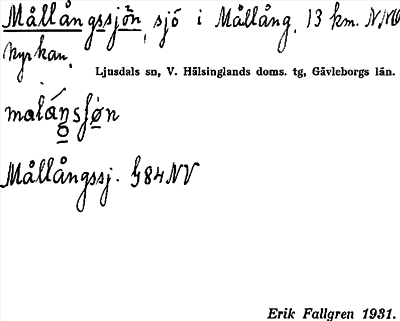 Mållångssjön, sjö i Mållång, 13 km. NNV
kyrkan.
Ljusdals sn, V. Hälsinglands doms. tg, Gävleborgs län.
Mållångssj. G84NV
Erik Fallgren 1931.